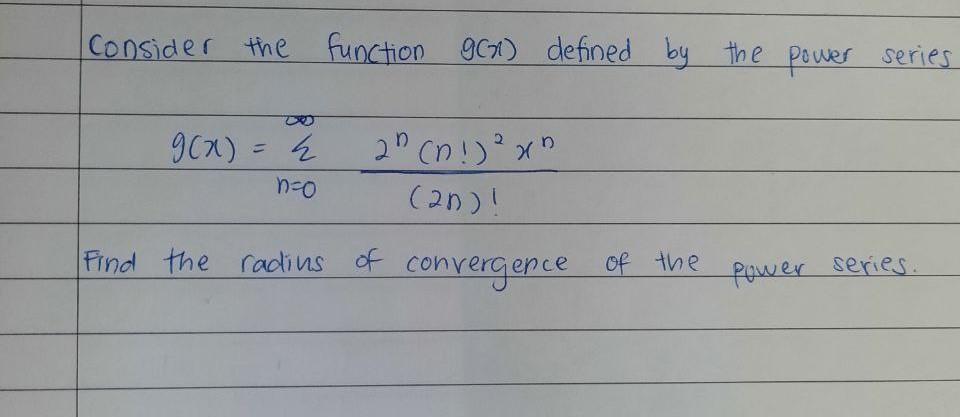 Consider the function g(x) defined by the power series
∞
g(x) = Σ 2ⁿ (n!)² xⁿ
n=0 (2n)!
Find the radius of convergence of the power series.